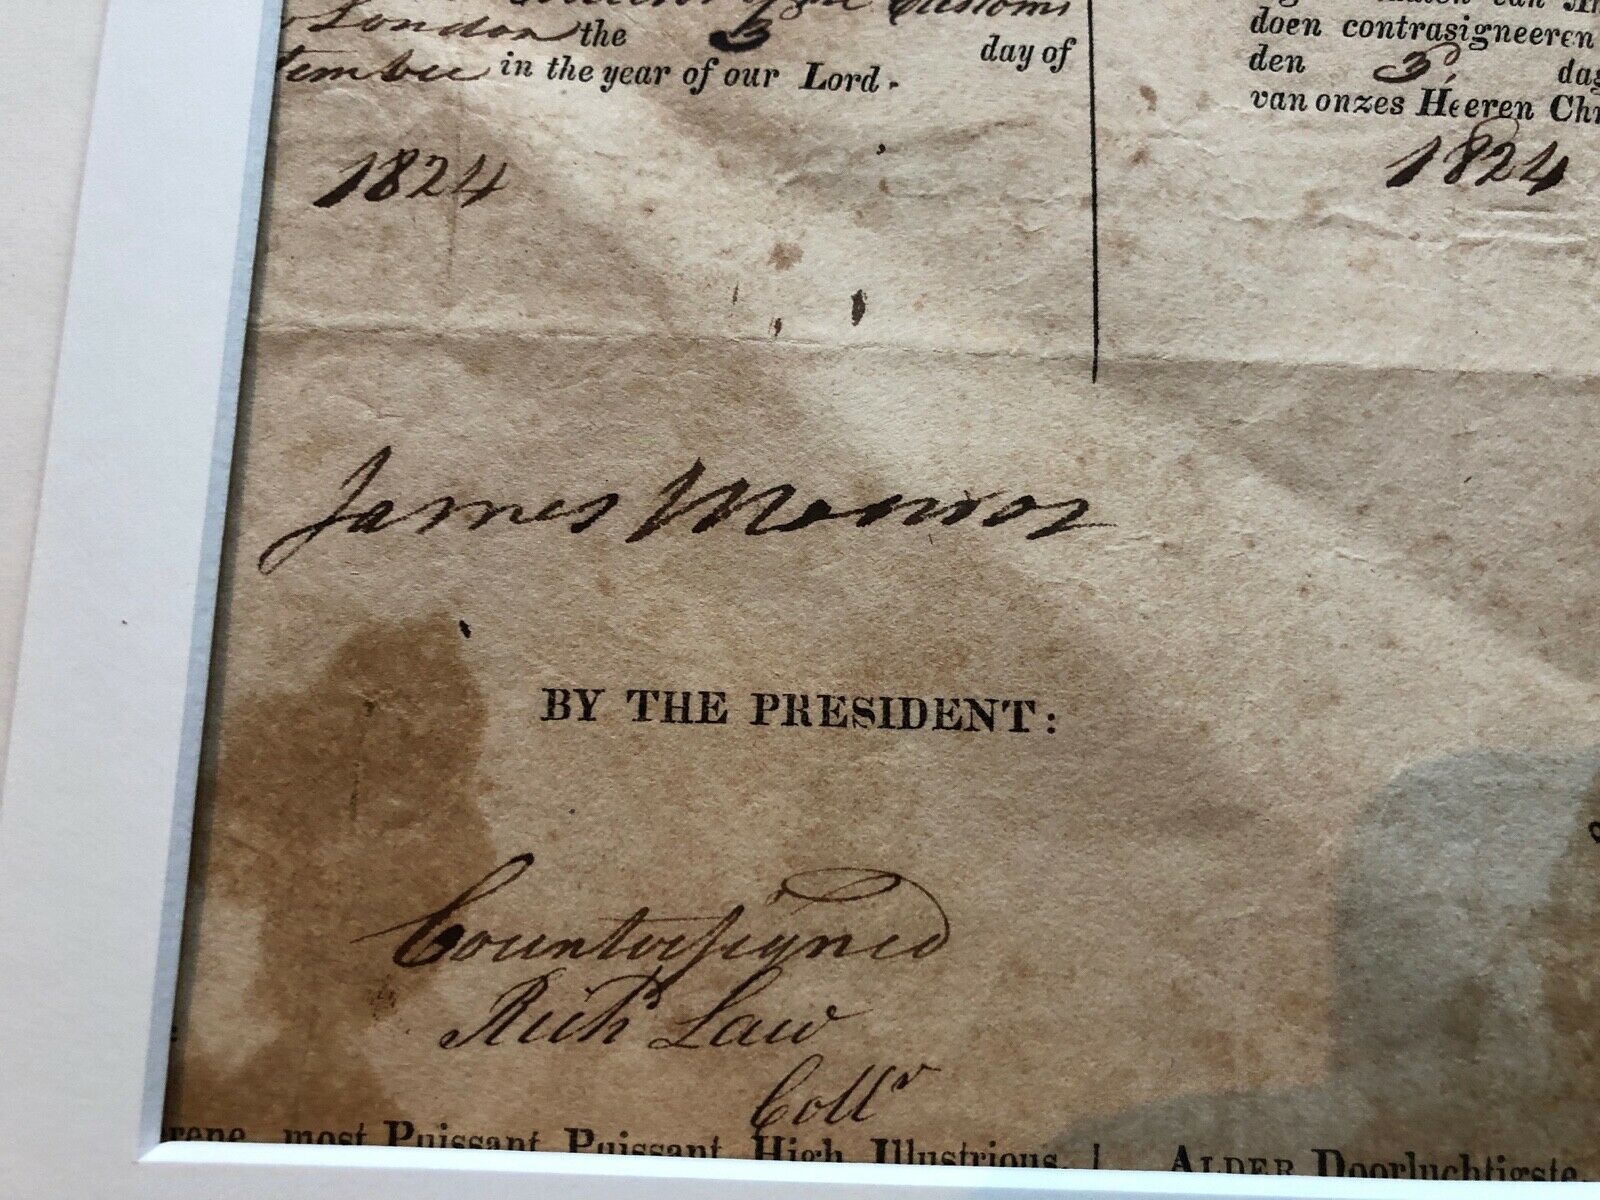 of the Customs
London the 3 day of
tember in the year of our Lord.
1824
doen contrasigneeren
den 3 dag
van onzes Heeren Chr
1824
James Monroe
BY THE PRESIDENT:
Countersigned
Richd Law
Collr
rene, most Puissant, Puissant, High, Illustrious,
ALDER Doorluchtigste